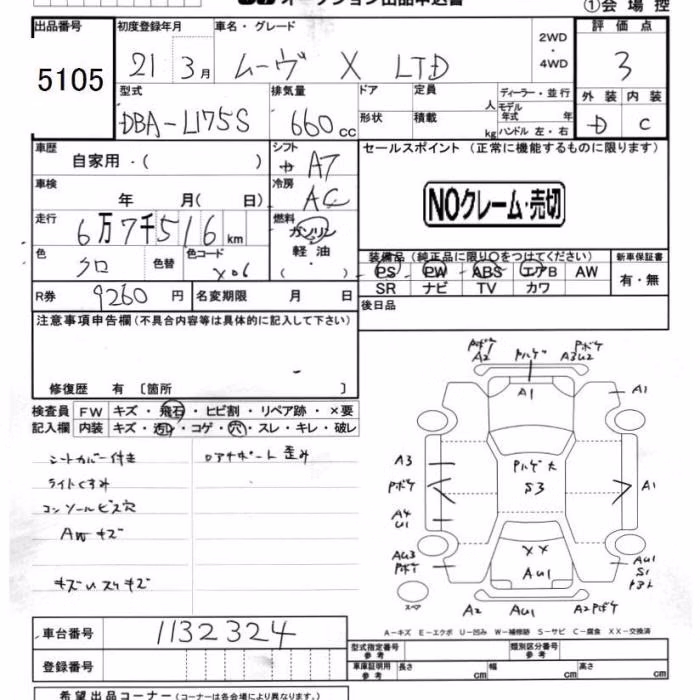 オークション出品申込書 ①会場控
出品番号 初度登録年月 車名・グレード 2WD・4WD 評価点
5105 21 3月 ムーヴ X LTD 3
型式 排気量 ドア 定員 人 ディーラー・並行 外装 内装
DBA-L175S 660cc 形状 積載 kg モデル年式 年 ハンドル 左・右 D C
車歴 自家用・( ) シフト AT セールスポイント (正常に機能するものに限ります)
車検 年 月( 日) 冷房 AC
NOクレーム・売切
走行 6万7千516km 燃料 ガソリン 軽油 ・( )
色 クロ 色替 色コード X06
装備品(純正品に限り○をつけてください) 新車保証書
PS PW ABS エアB AW 有・無
SR ナビ TV カワ
R券 9260円 名変期限 月 日 後日品
注意事項申告欄(不具合内容等は具体的に記入して下さい)
修復歴 有 〔箇所 〕
検査員 FW キズ・飛石・ヒビ割・リペア跡・×要
記入欄 内装 キズ・汚れ・コゲ・穴・スレ・キレ・破レ
シートカバー付き
ライトくすみ
コンソールビス穴
AWキズ
Pボケ A2 Pボケ A3U2
A1 A1
A3 Pボケ A4 U1
S3 A1
AU3 Pボケ
XX AU1
AU1 S1
スペア A2 AU1 A2 Pボケ
A-キズ E-エクボ U-凹み W-補修跡 S-サビ C-腐食 XX-交換済
車台番号 1132324
登録番号
型式指定番号 参考 類別区分番号 参考
車庫証明用 参考 長さ cm 幅 cm 高さ cm
希望出品コーナー(コーナーは各会場により異なります。)